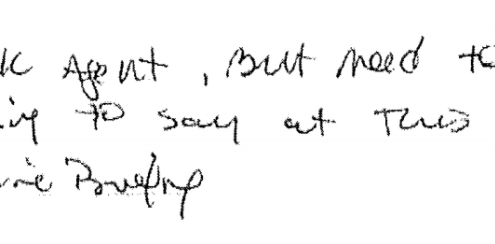 Agent, But need to
to say at This
Briefing